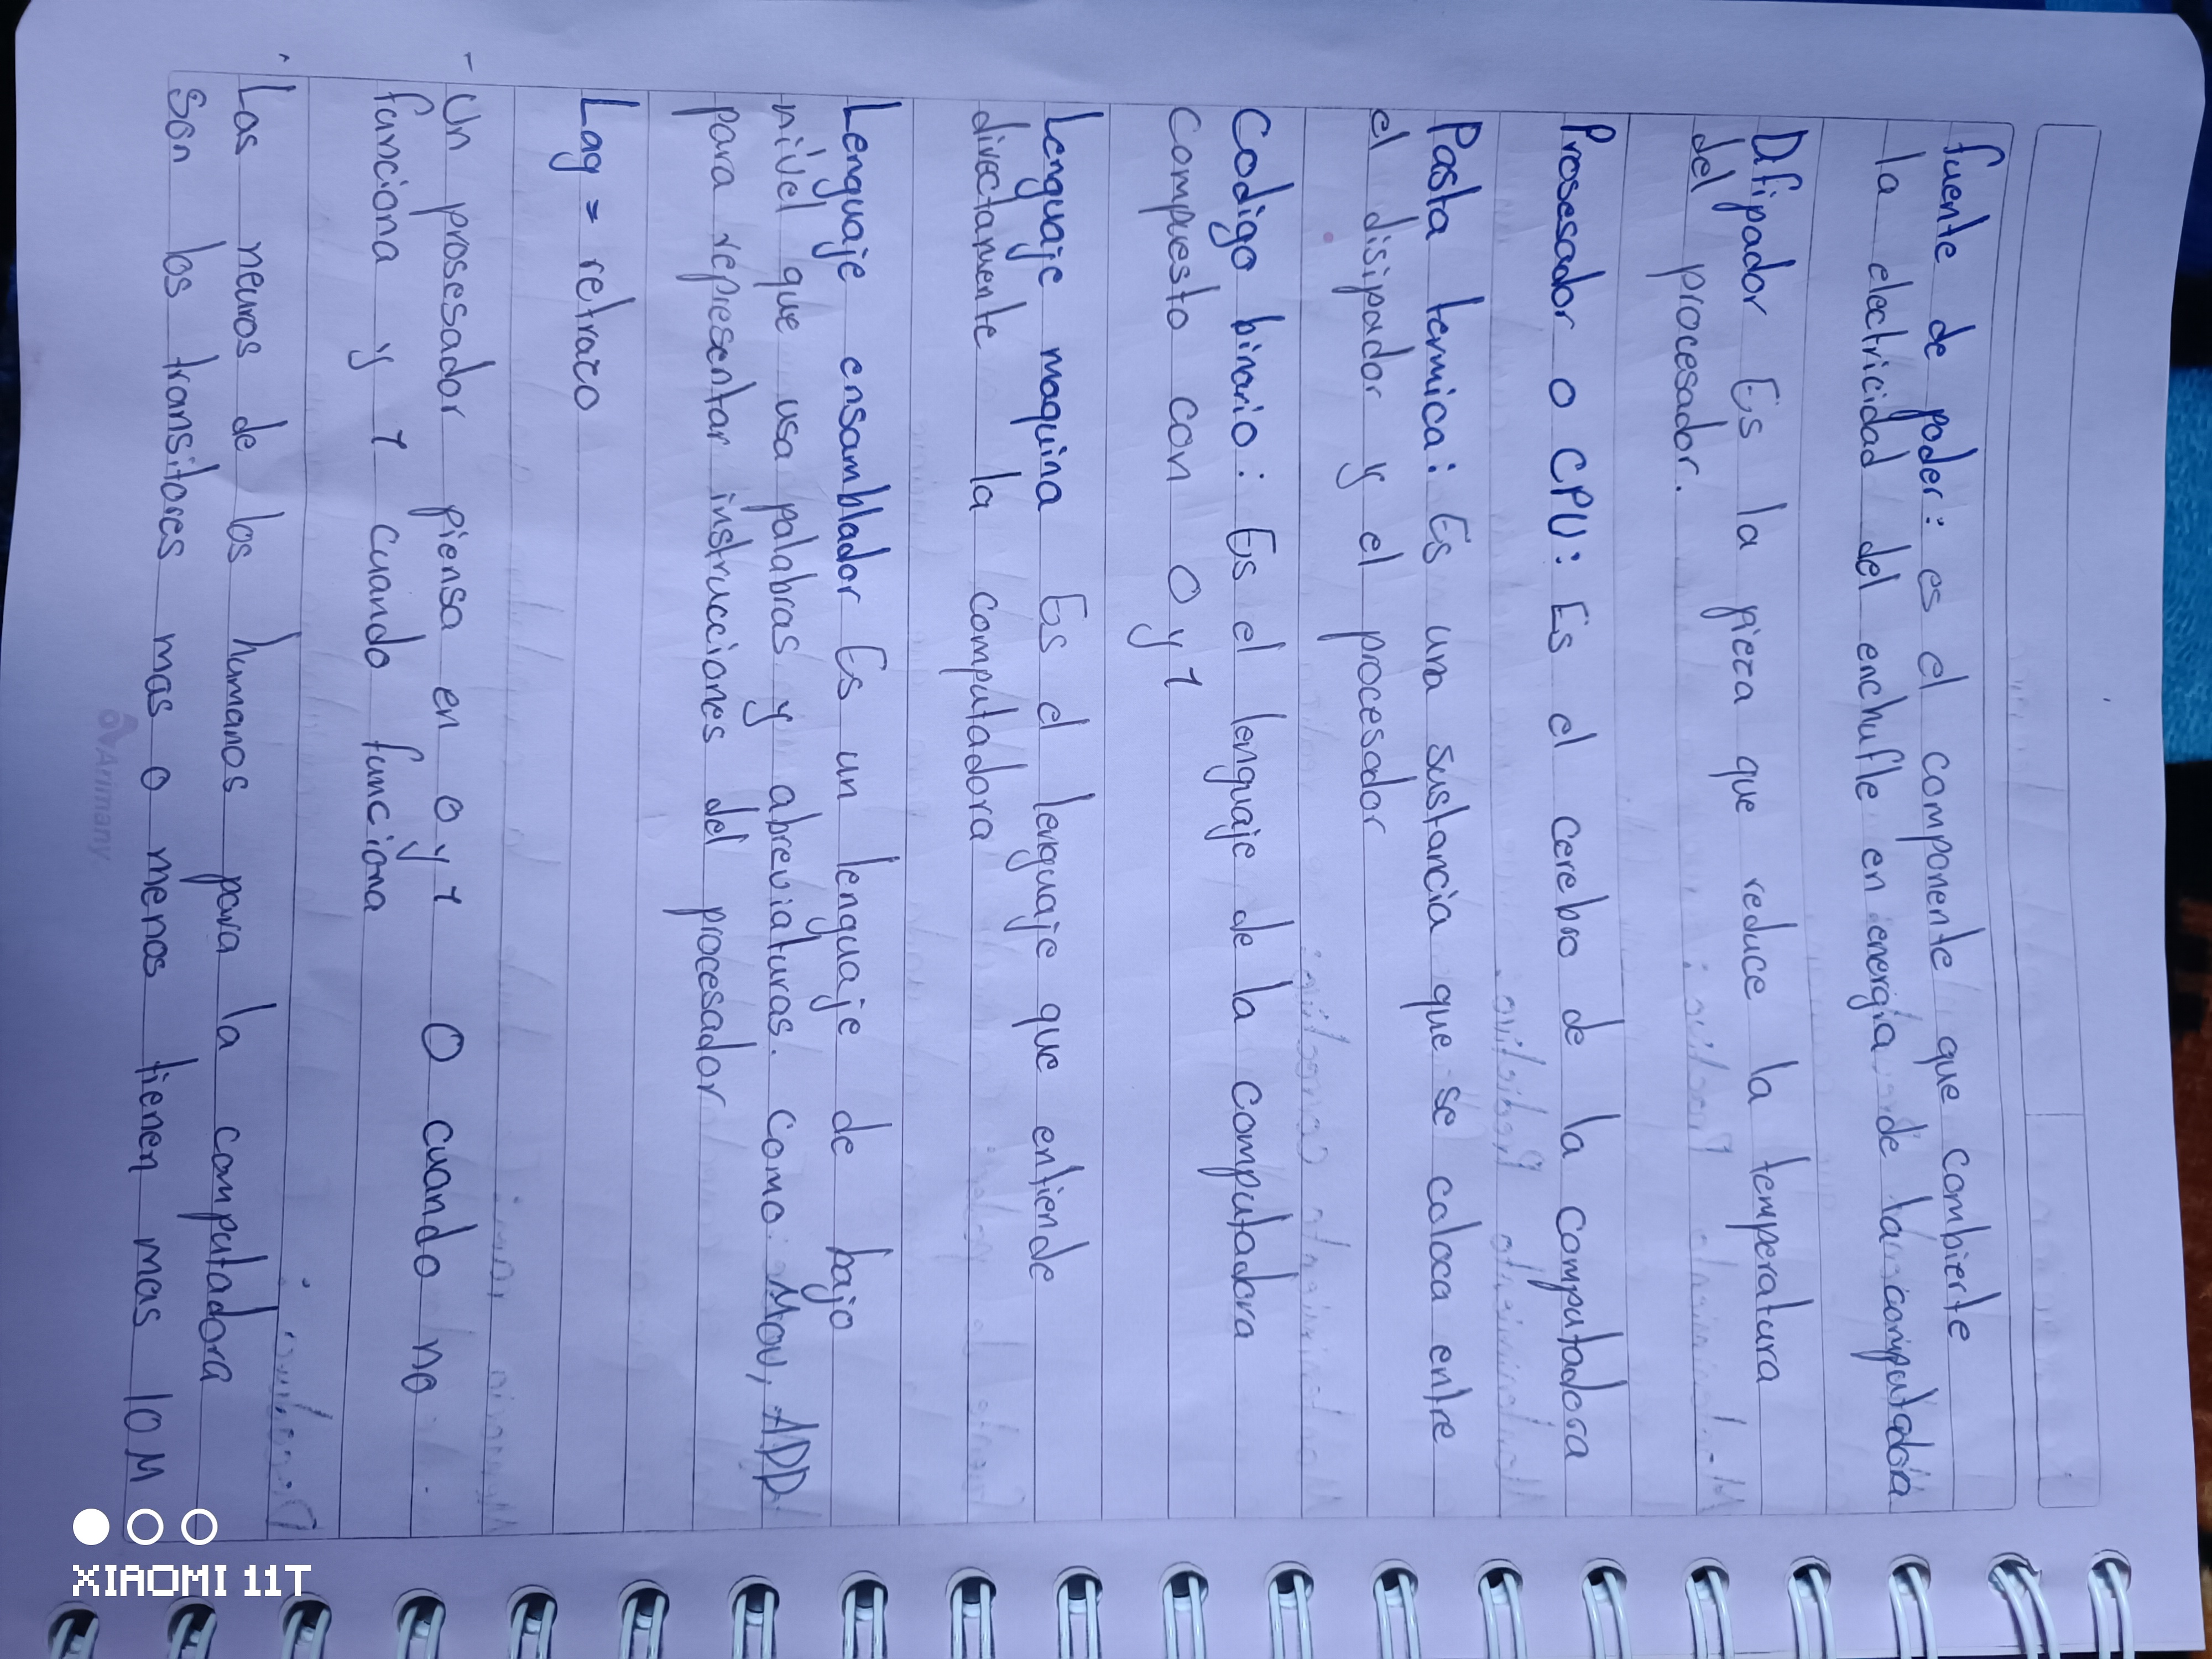 fuente de poder: es el componente que combierte
la electricidad del enchufle en energía de la computadora
Difipador Es la pieza que reduce la temperatura
del procesador.
Prosesador o CPU: Es el cerebro de la computadora
Pasta termica: Es una sustancia que se coloca entre
el disipador y el procesador
Codigo binario: Es el lenguaje de la computadora
compuesto con 0 y 1
Lenguaje maquina Es el lenguaje que entiende
directamente la computadora
Lenguaje ensamblador Es un lenguaje de bajo
nivel que usa palabras y abreviaturas. como: Mov, ADD
para representar instrucciones del procesador
Lag = retrazo
- Un prosesador piensa en 0 y 1 0 cuando no
funciona y 1 cuando funciona
. Las neuros de los humanos para la computadora
son los transitores mas o menos tienen mas 10 M
Arimany
XIAOMI 11T